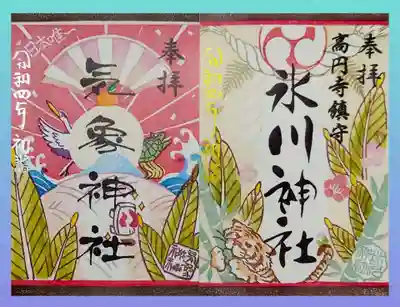 奉拝
日本唯一
気象神社
令和四年 初詣
奉拝
高円寺鎮守
氷川神社